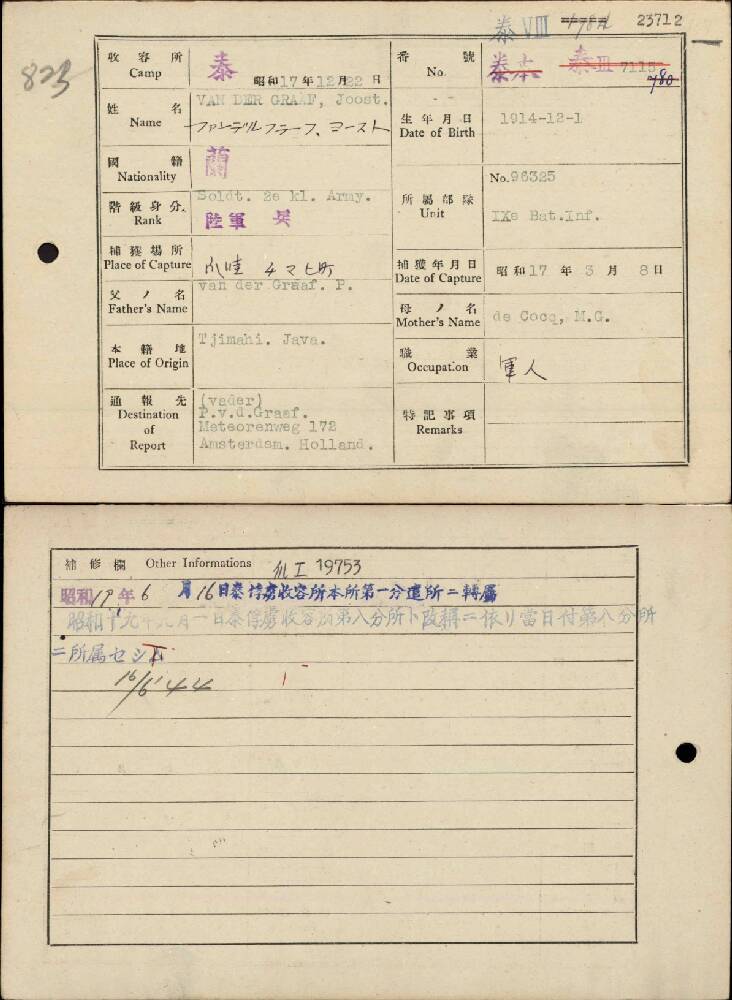 泰 VIII 23712
823
收容所 Camp 泰 昭和17年12月22日
番號 No. 泰本 泰III 7115 780
姓名 Name VAN DER GRAAF, Joost.
ファンデルフラーフ、ヨースト
生年月日 Date of Birth 1914-12-1
國籍 Nationality 蘭
階級身分 Rank Soldt. 2e kl. Army.
陸軍 兵
所屬部隊 Unit No.96325
IXe Bat.Inf.
捕獲場所 Place of Capture 爪哇 チマヒ町
捕獲年月日 Date of Capture 昭和17年3月8日
父ノ名 Father's Name van der Graaf. P.
母ノ名 Mother's Name de Cocq, M.G.
本籍地 Place of Origin Tjimahi. Java.
職業 Occupation 軍人
通報先 Destination of Report (vader)
P.v.d.Graaf.
Meteorenweg 172
Amsterdam. Holland.
特記事項 Remarks
補修欄 Other Informations 19753
昭和19年6月16日泰俘虜收容所本所第一分遣所ニ轉屬
昭和十九年九月一日泰俘虜收容所第八分所ト改稱ニ依リ當日付第八分所
ニ所属セシム
16/6'44